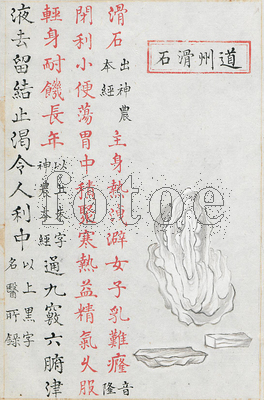 道州滑石
滑石出神農本經主身熱洩澼女子乳難癃音隆
閉利小便蕩胃中積聚寒熱益精氣久服
輕身耐饑長年以上朱字神農本經通九竅六腑津
液去留結止渴令人利中以上黑字名醫所錄
fotoe